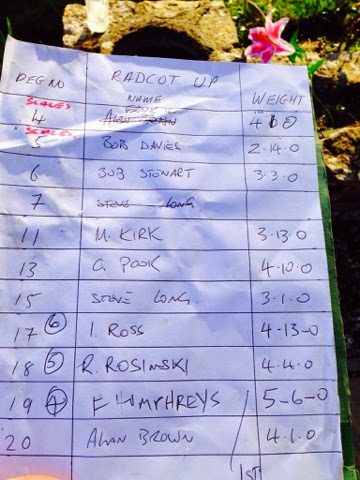 PEG NO RADCOT UP
NAME WEIGHT
SCALES
4 ALAN 4 0
SCALES
5 BOB DAVIES 2-14-0
6 BOB STEWART 3-3-0
7 STEVE LONG
11 M. KIRK 3-13-0
13 G. POOK 4-10-0
15 STEVE LONG. 3-1-0
17 (6) I. ROSS 4-13-0
18 (5) R. ROSINSKI 4-4-0
19 (4) F HUMPHREYS 5-6-0
20 ALAN BROWN 4-1-0
1ST